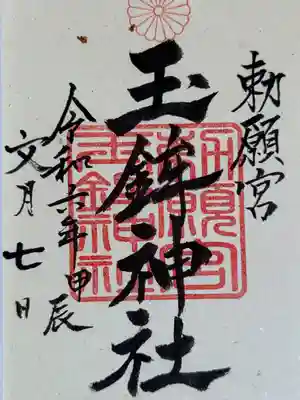 勅願宮
玉鉾神社
令和六年甲辰
文月七日
勅願宮
玉鉾神社